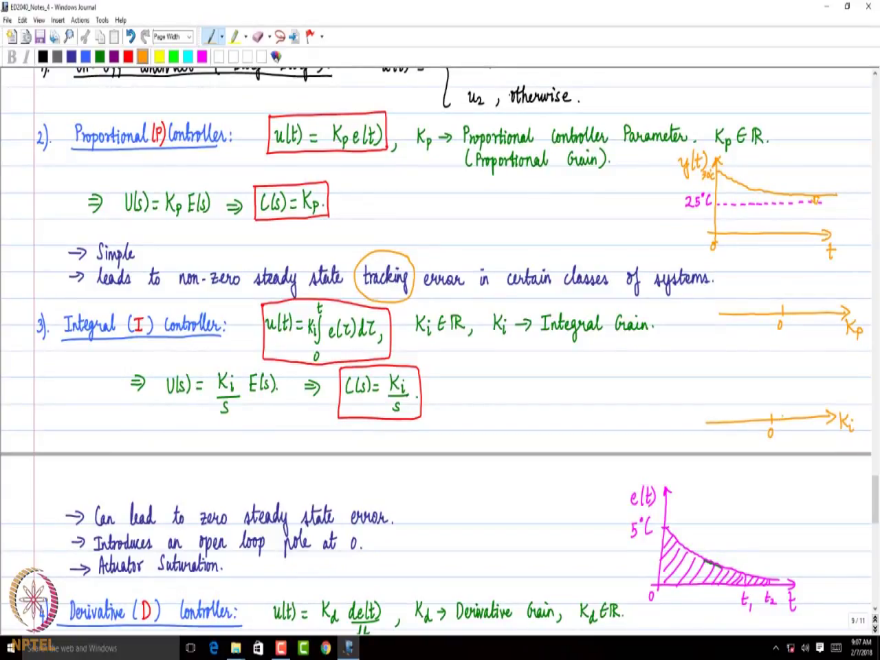 ED2040_Notes_4 - Windows Journal
File Edit View Insert Actions Tools Help
Page Width
B I
u₂, otherwise.
2). Proportional (P) Controller: u(t) = Kp e(t), Kp → Proportional Controller Parameter. Kp ∈ ℝ.
(Proportional Gain).
y(t)
30°C
25°C
0 t
⇒ U(s) = Kp E(s) ⇒ C(s) = Kp.
→ Simple
→ leads to non-zero steady state tracking error in certain classes of systems.
3). Integral (I) Controller: u(t) = Ki ∫₀ᵗ e(τ) dτ, Ki ∈ ℝ, Ki → Integral Gain.
0 Kp
⇒ U(s) = Ki/s E(s). ⇒ C(s) = Ki/s.
0 Ki
→ Can lead to zero steady state error.
→ Introduces an open loop pole at 0.
→ Actuator Saturation.
e(t)
5°C
0 t₁ t₂ t
4) Derivative (D) Controller: u(t) = Kd de(t)/dt, Kd → Derivative Gain, Kd ∈ ℝ.
9/11
NPTEL
the web and Windows
9:07 AM
2/7/2018